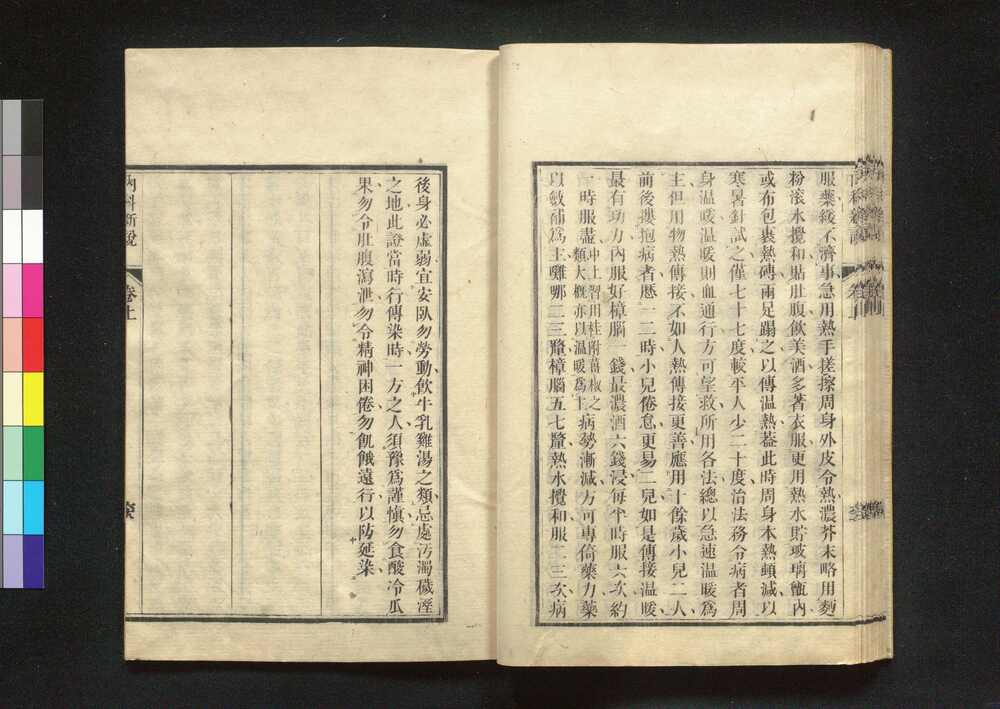 服藥緩不濟事急用熱手搓擦周身外皮令熱濃芥末略用麪
粉滾水攪和貼肚腹飲美酒多著衣服更用熱水貯玻璃瓶內
或布包裹熱磚兩足蹋之以傳温熱葢此時周身本熱頓減以
寒暑針試之僅七十七度較平人少二十度治法務令病者周
身温暖温暖則血通行方可望救所用各法總以急速温暖爲
主但用物熱傳接不如人熱傳接更善應用十餘歲小兒二人
前後摟抱病者懸一二時小兒倦怠更易二兒如是傳接温暖
最有功力內服好樟腦一錢最濃酒六錢浸每半時服六次約
一時服盡中土習用桂附薑椒之類大概亦以温暖爲主病勢漸減方可專倚藥力藥
以斂補爲主嘰哪二三釐樟腦五七釐熱水攪和服二三次病
後身必虛弱宜安臥勿勞動飲牛乳雞湯之類忌處汚濁穢溼
之地此證當時行傳染時一方之人須豫爲謹愼勿食酸冷瓜
果勿令肚腹瀉泄勿令精神困倦勿飢餓遠行以防延染
內科新說
卷上